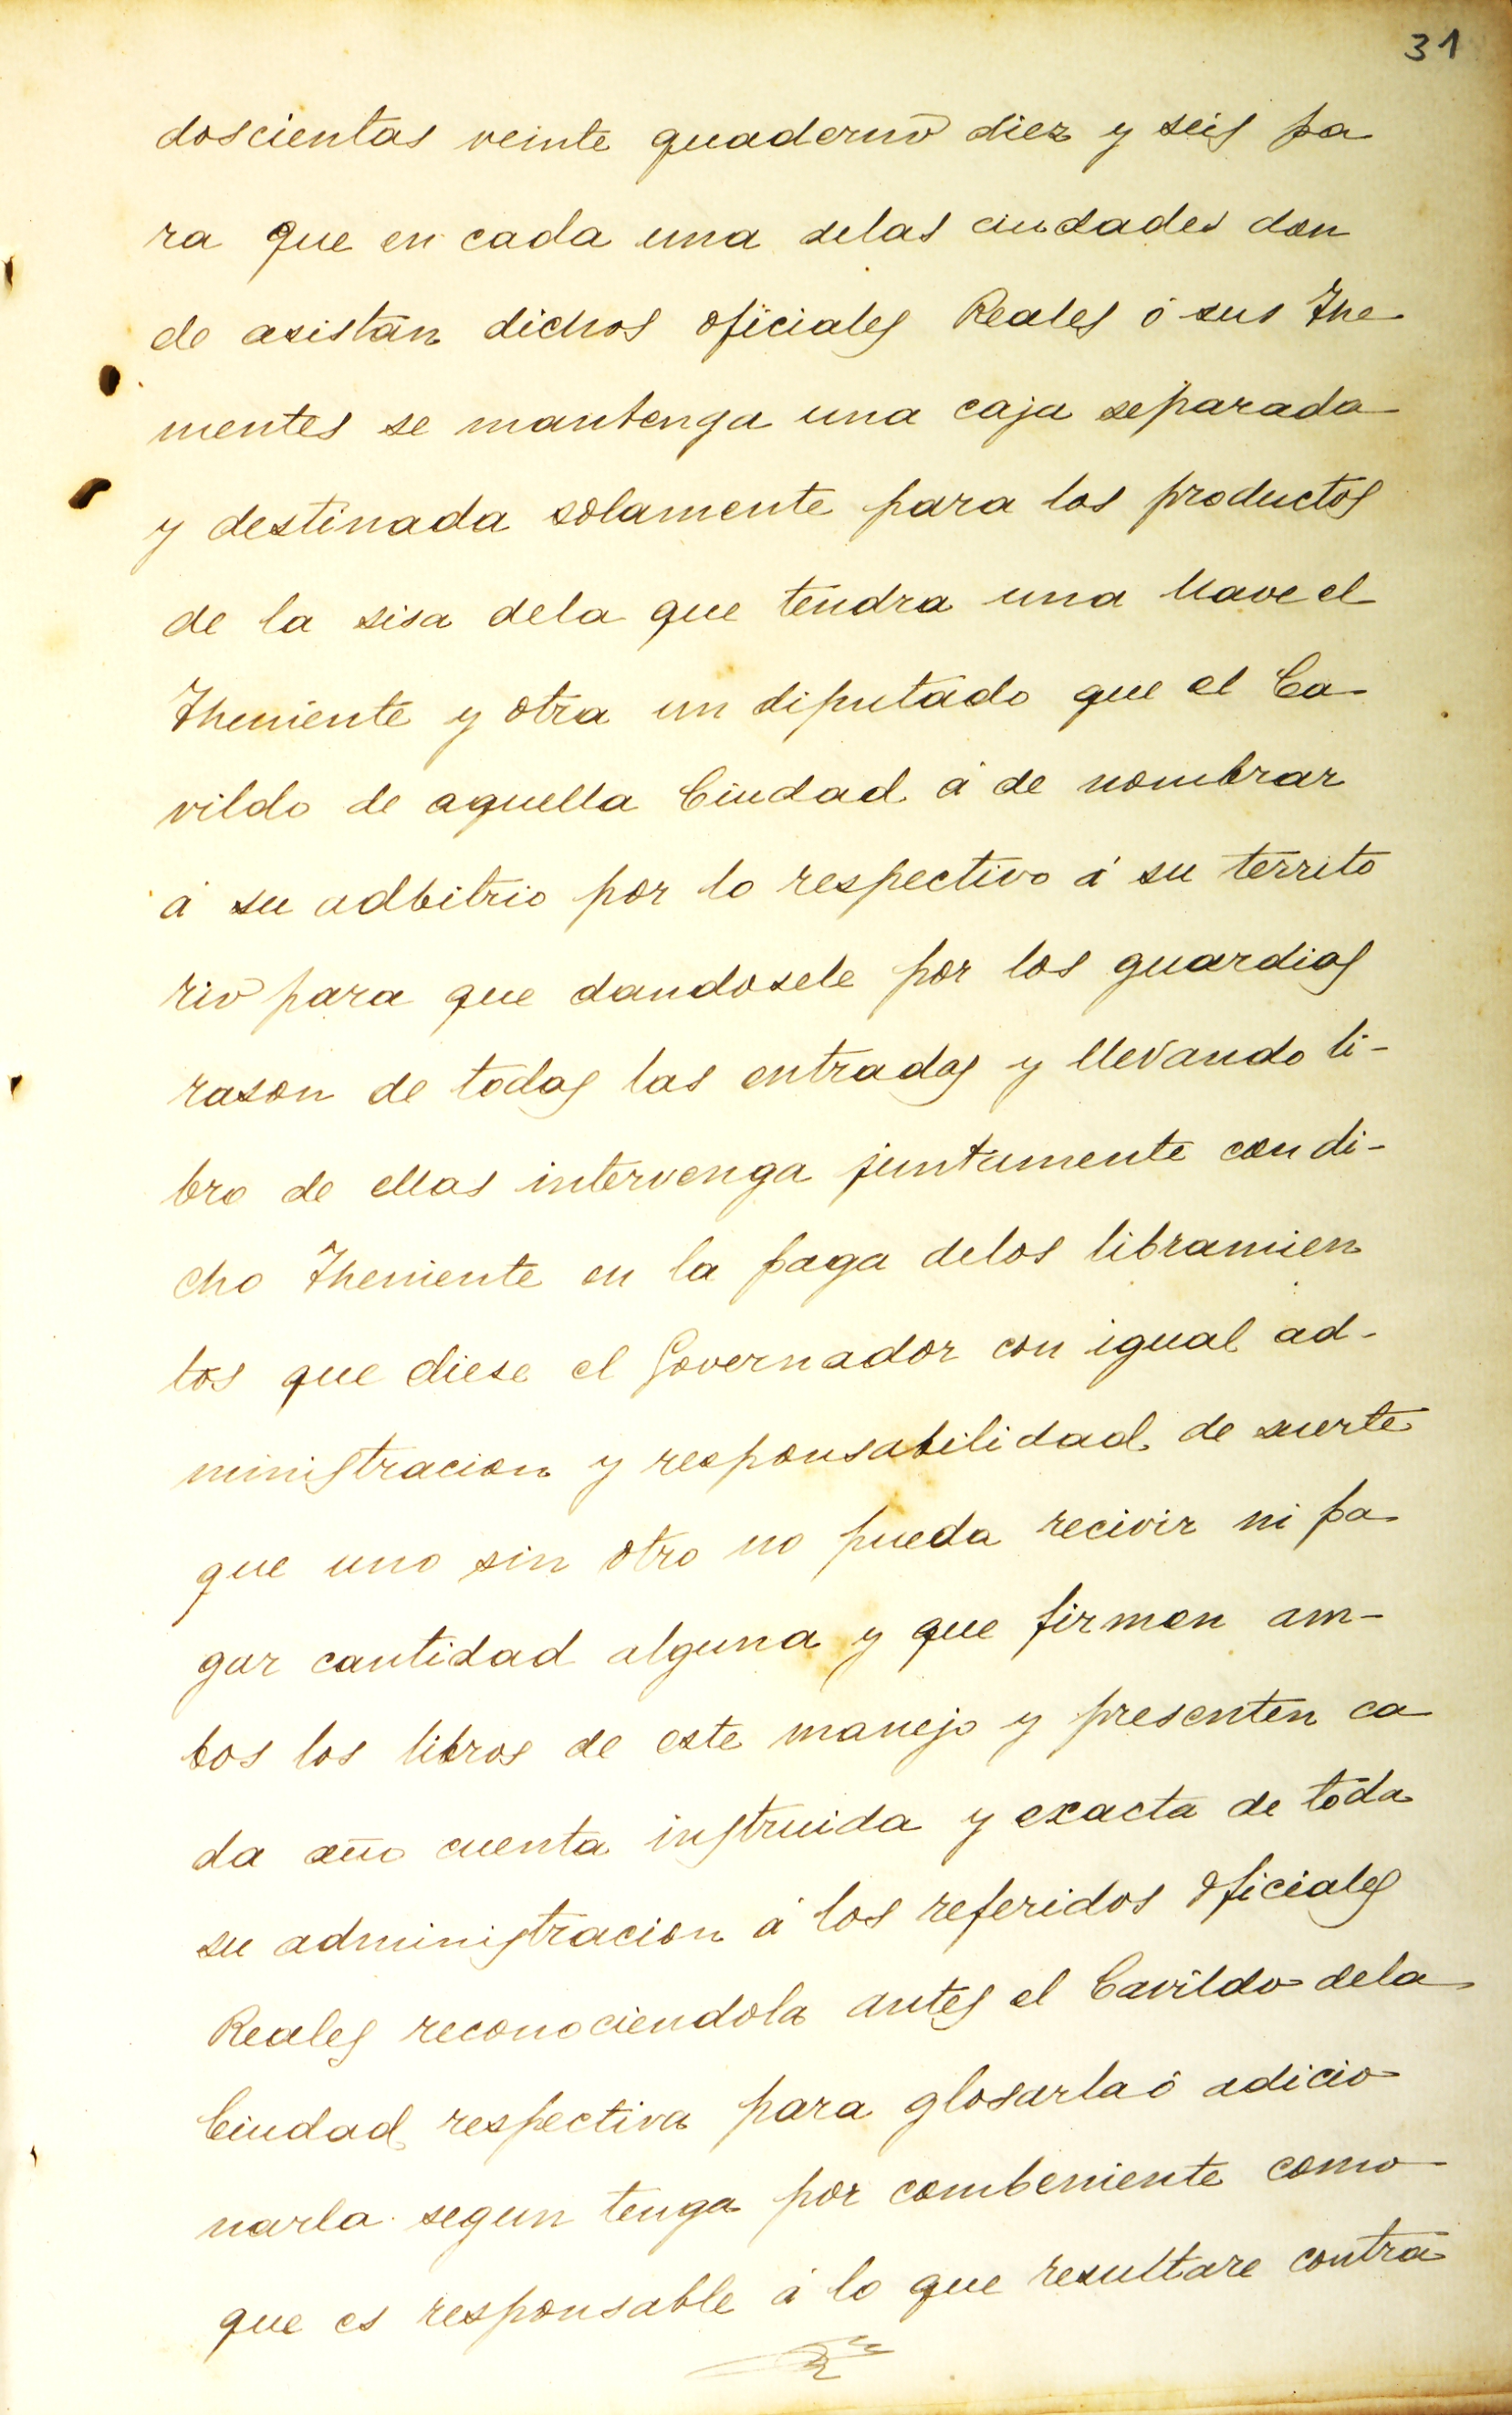 31
doscientas veinte quaderno diez y seis pa
ra que en cada una delas ciudades don
de asistan dichos oficiales Reales ó sus The
nientes se mantenga una caja separada
y destinada solamente para los productos
de la sisa dela que tendra una llave el
Theniente y otra un diputado que el Ca-
vildo de aquella Ciudad á de nombrar
á su adbitrio por lo respectivo á su territo
rio para que dandosele por los guardias
rason de todas las entradas y llevando li-
bro de ellas intervenga juntamente con di-
cho Theniente en la paga delos libramien
tos que diese el Governador con igual ad-
ministracion y responsabilidad de suerte
que uno sin otro no pueda recivir ni pa
gar cantidad alguna y que firmen am-
bos los libros de este manejo y presenten ca
da año cuenta instruida y exacta de toda
su administracion á los referidos Oficiales
Reales reconociendola antes el Cavildo dela
Ciudad respectiva para glosarla ó adicio
narla segun tenga por combeniente como
que es responsable á lo que resultare contra